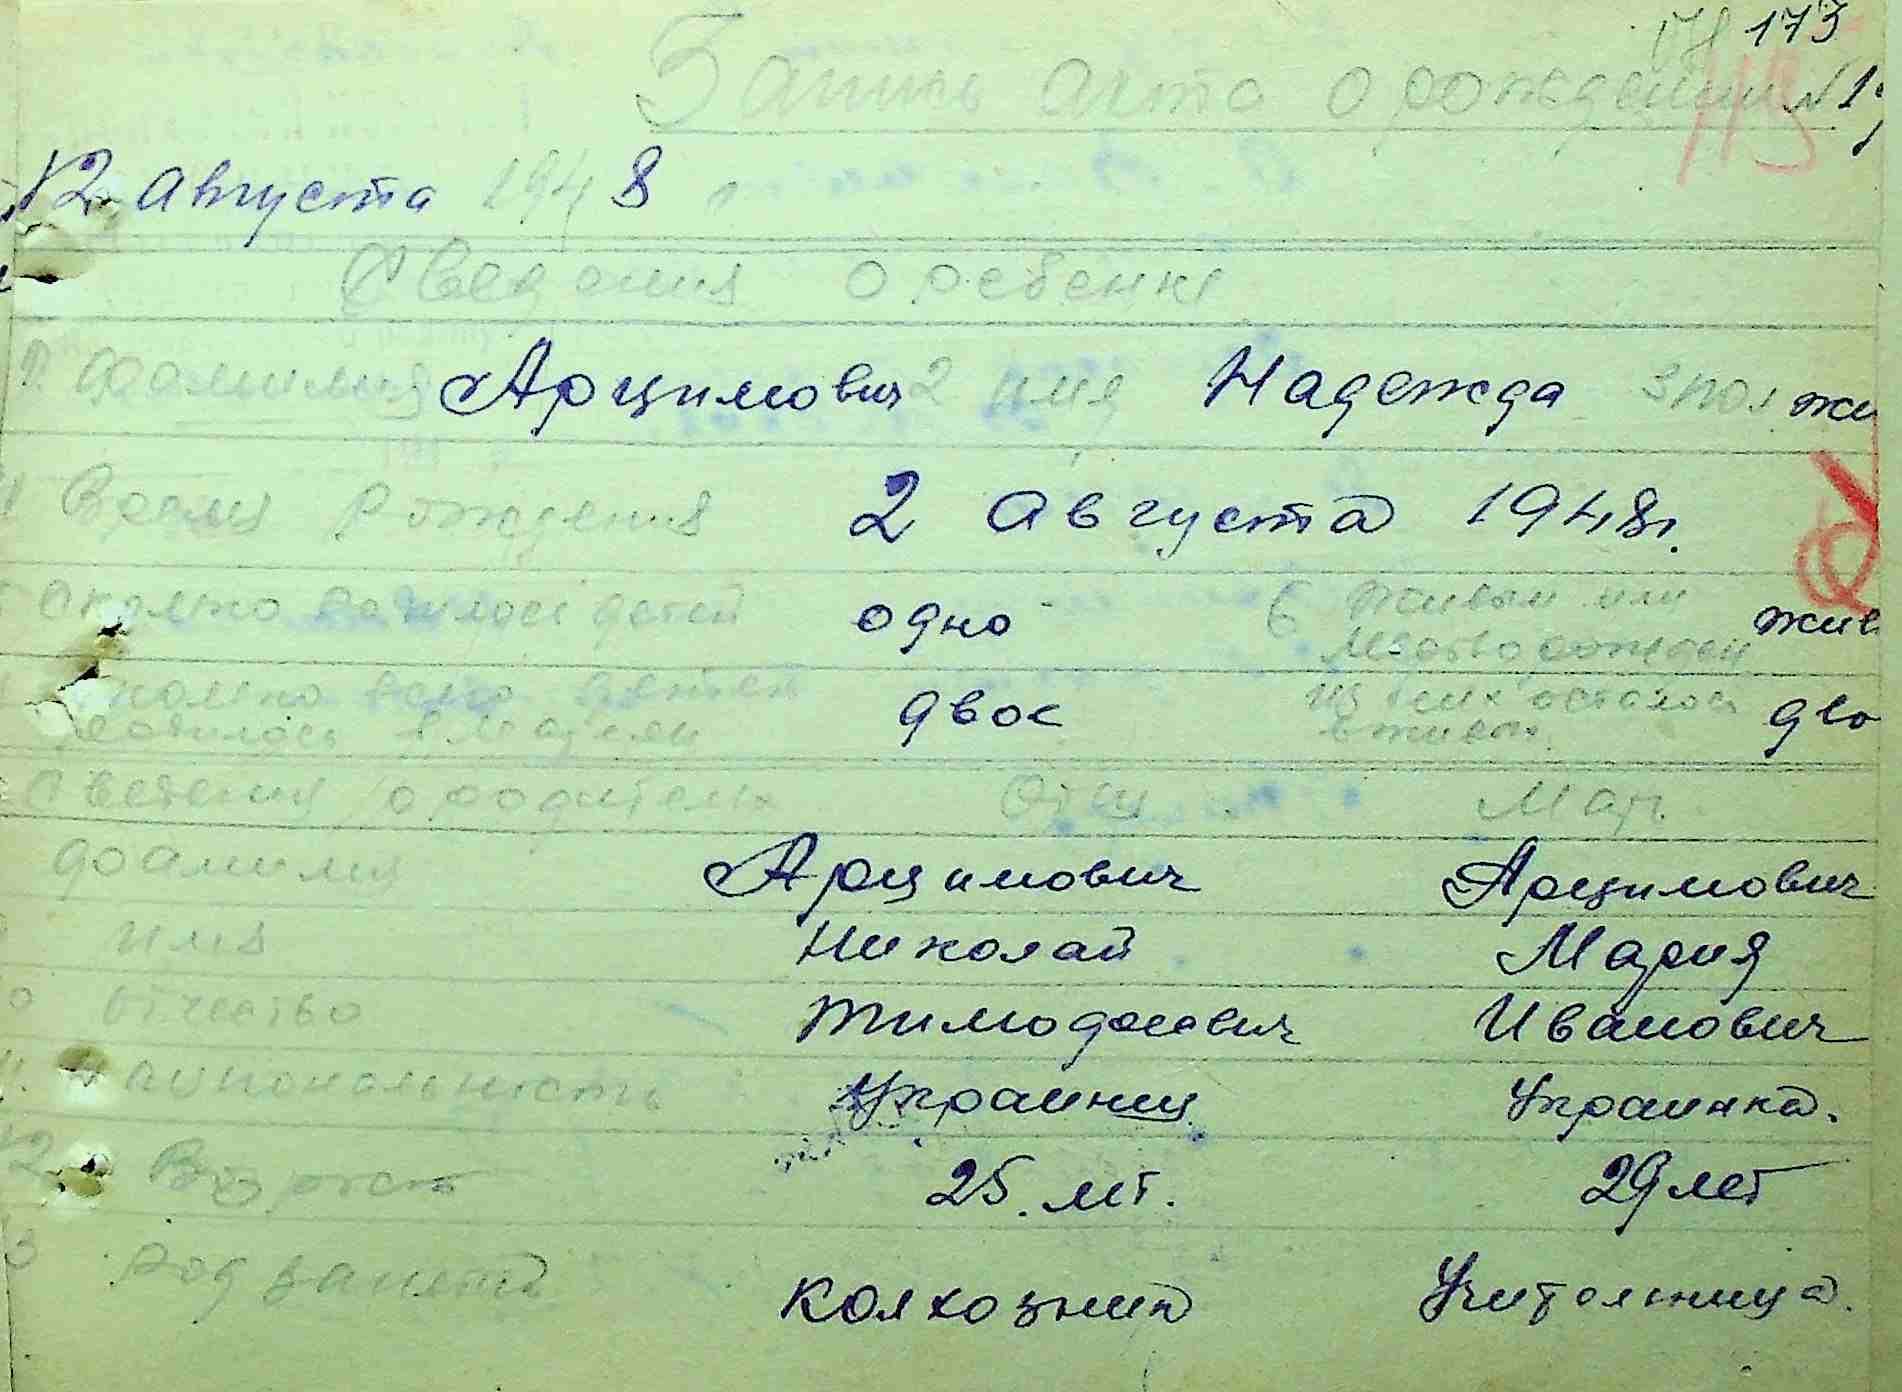 173
Запись акта о рождении № 1
12 августа 1948 г
Сведения о ребенке
1. фамилия Арцимович 2 имя Надежда 3 пол жи
Время рождения 2 августа 1948 г.
сколько родилось детей одно 6 живым или мертворожден жив
сколько всего детей родилось у матери двое из них осталось в живых дво
Сведения о родителях Отец Мат.
фамилия Арцимович Арцимович
имя Николай Мария
отчество Тимофеевич Иванович
11. национальность Украинец Украинка.
12 Возраст 25. лет. 29 лет
3 род занятй колхозник Учительница.